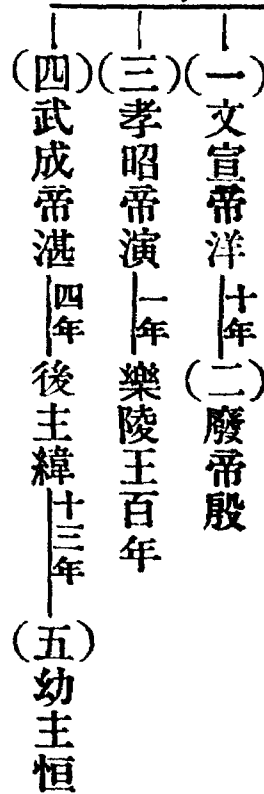 (一)文宣帝洋 十年 (二)廢帝殷
(三)孝昭帝演 一年 樂陵王百年
(四)武成帝湛 四年 後主緯 十三年 (五)幼主恒